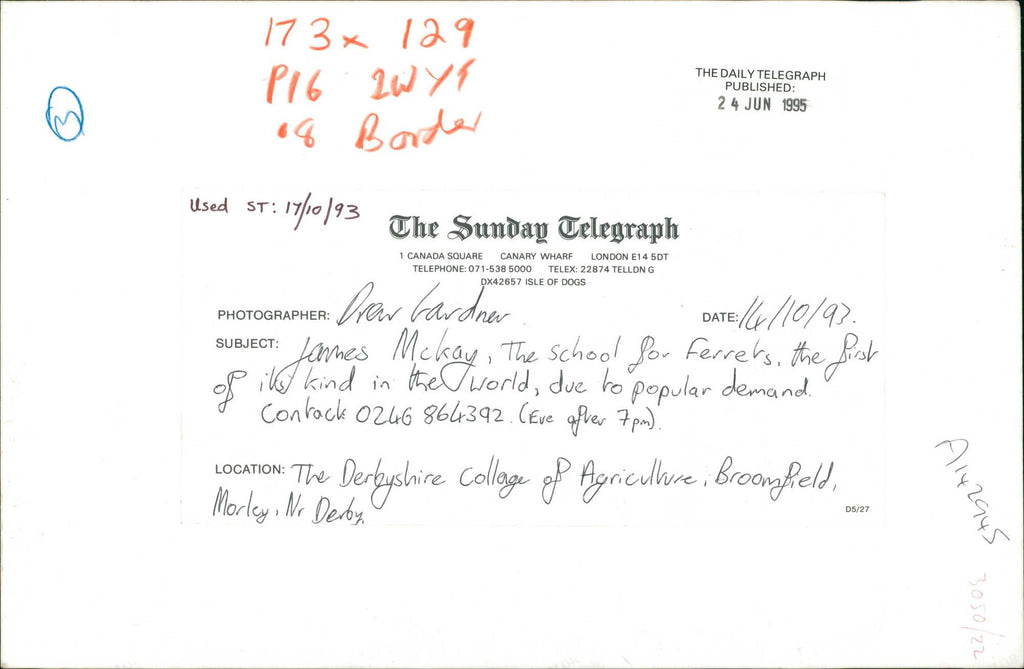 173 x 129
P16 2WYT
.8 Border
3
THE DAILY TELEGRAPH
PUBLISHED:
24 JUN 1995
Used ST: 17/10/93
The Sunday Telegraph
1 CANADA SQUARE CANARY WHARF LONDON E14 5DT
TELEPHONE: 071-538 5000 TELEX: 22874 TELLDN G
DX42657 ISLE OF DOGS
PHOTOGRAPHER: Drew Gardner
DATE: 14/10/93.
SUBJECT: James Mckay, The school for Ferrets, the first
of its kind in the world, due to popular demand.
Contack 0246 864392. (Eve after 7pm).
LOCATION: The Derbyshire Collage of Agriculture, Broomfield,
Morley, Nr Derby.
D5/27
A142945
3050/22